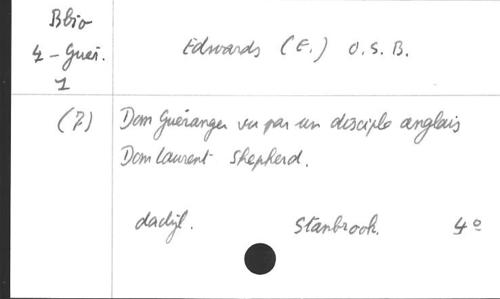 Bbio
4 - Guér.
1
Edwards (E.) O.S.B.
(7)
Dom Guéranger vu par un disciple anglais
Dom Laurent Shepherd.
dactyl. Stanbrook. 4º